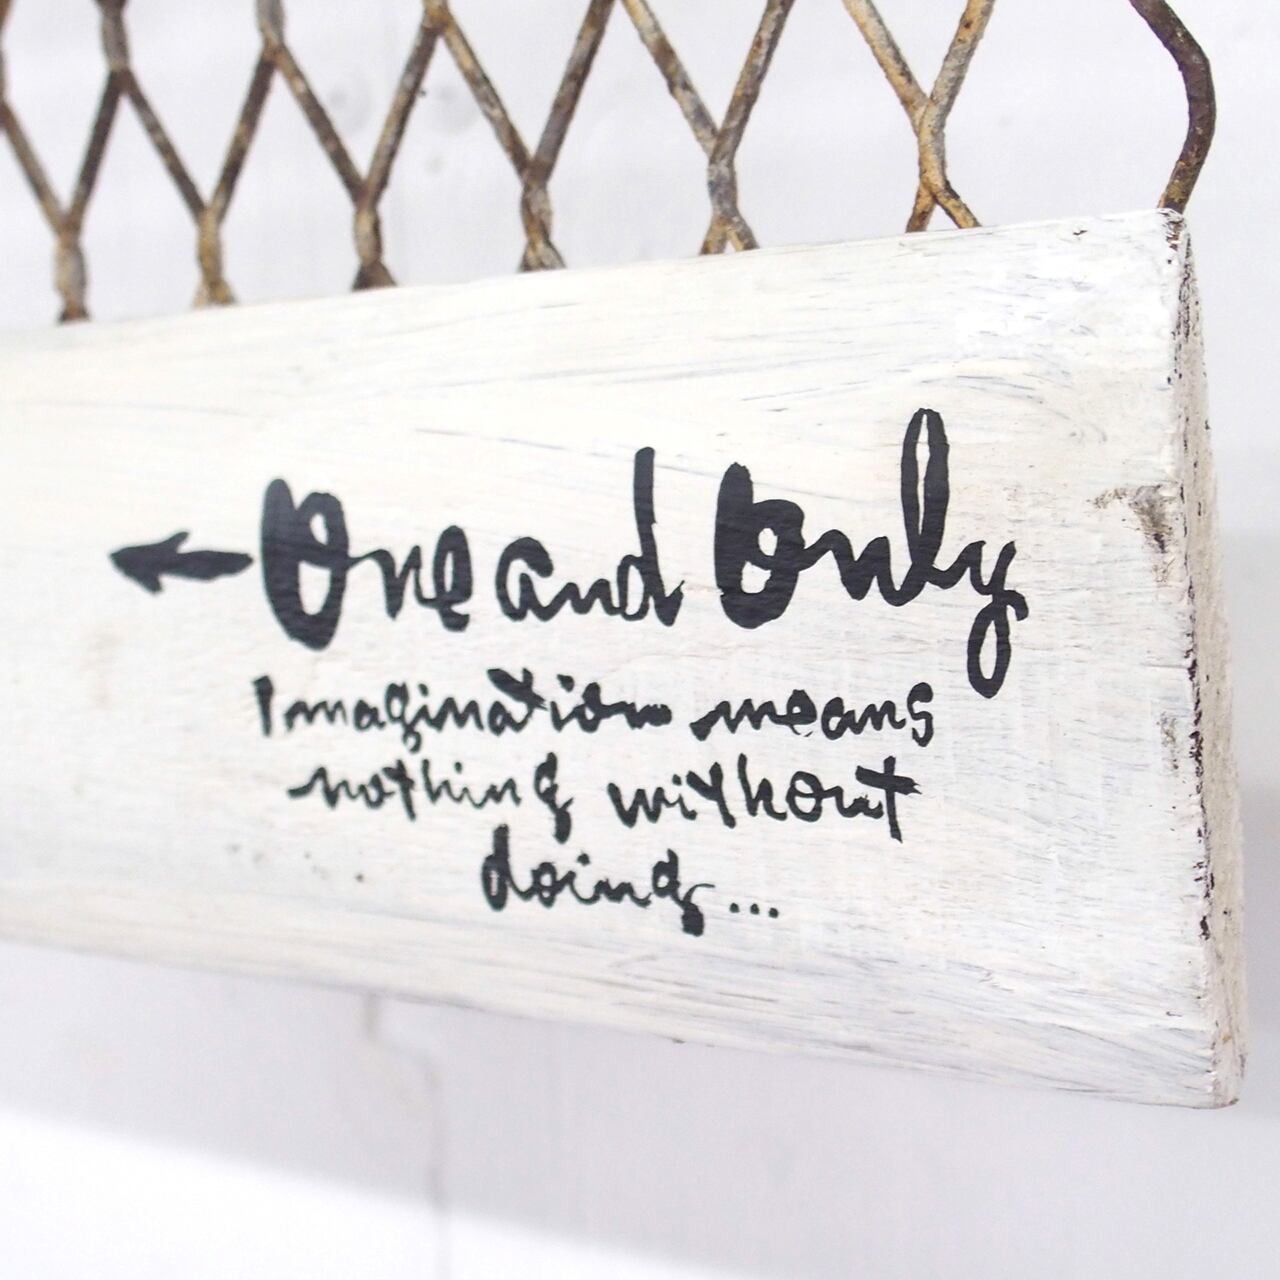 One and Only
Imagination means
nothing without
doing...